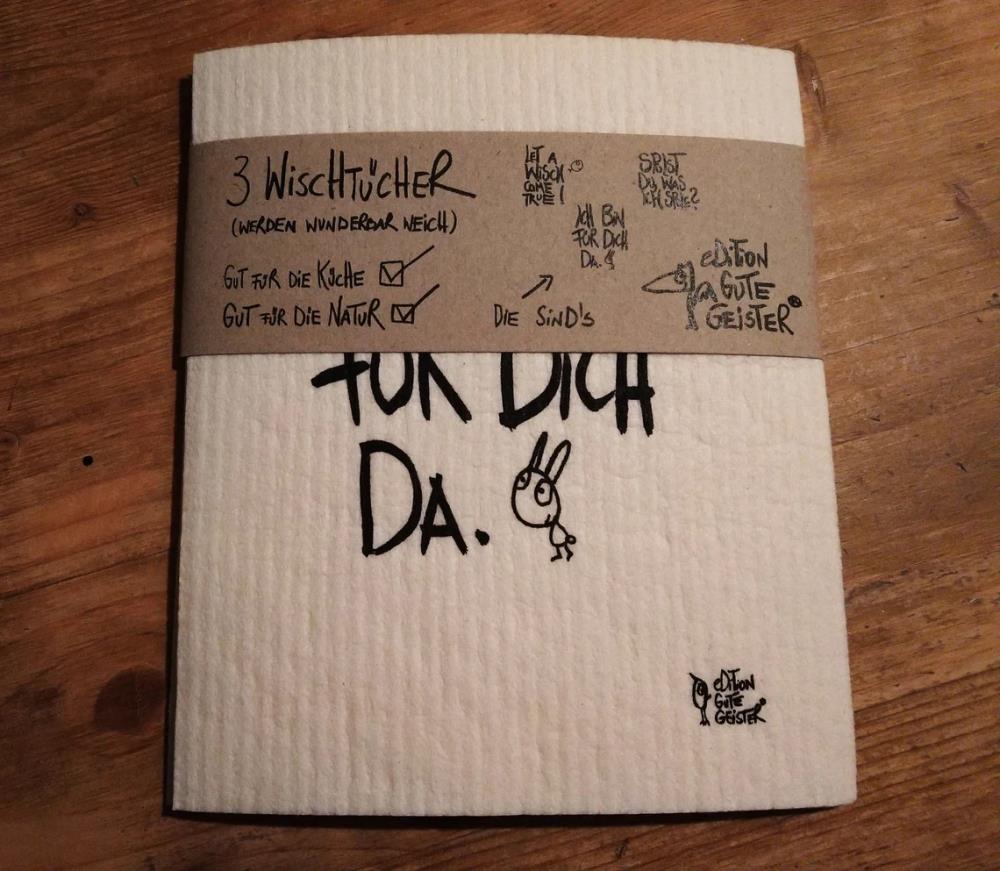 3 WISCHTÜCHER
(WERDEN WUNDERBAR WEICH)
GUT FÜR DIE KÜCHE
GUT FÜR DIE NATUR
LET A
WISCH
COME
TRUE!
SPÜST
DU, WAS
ICH SPÜE?
ICH BIN
FÜR DICH
DA.
DIE SIND'S
EDITION
GUTE
GEISTER
FÜR DICH
DA.
EDITION
GUTE
GEISTER